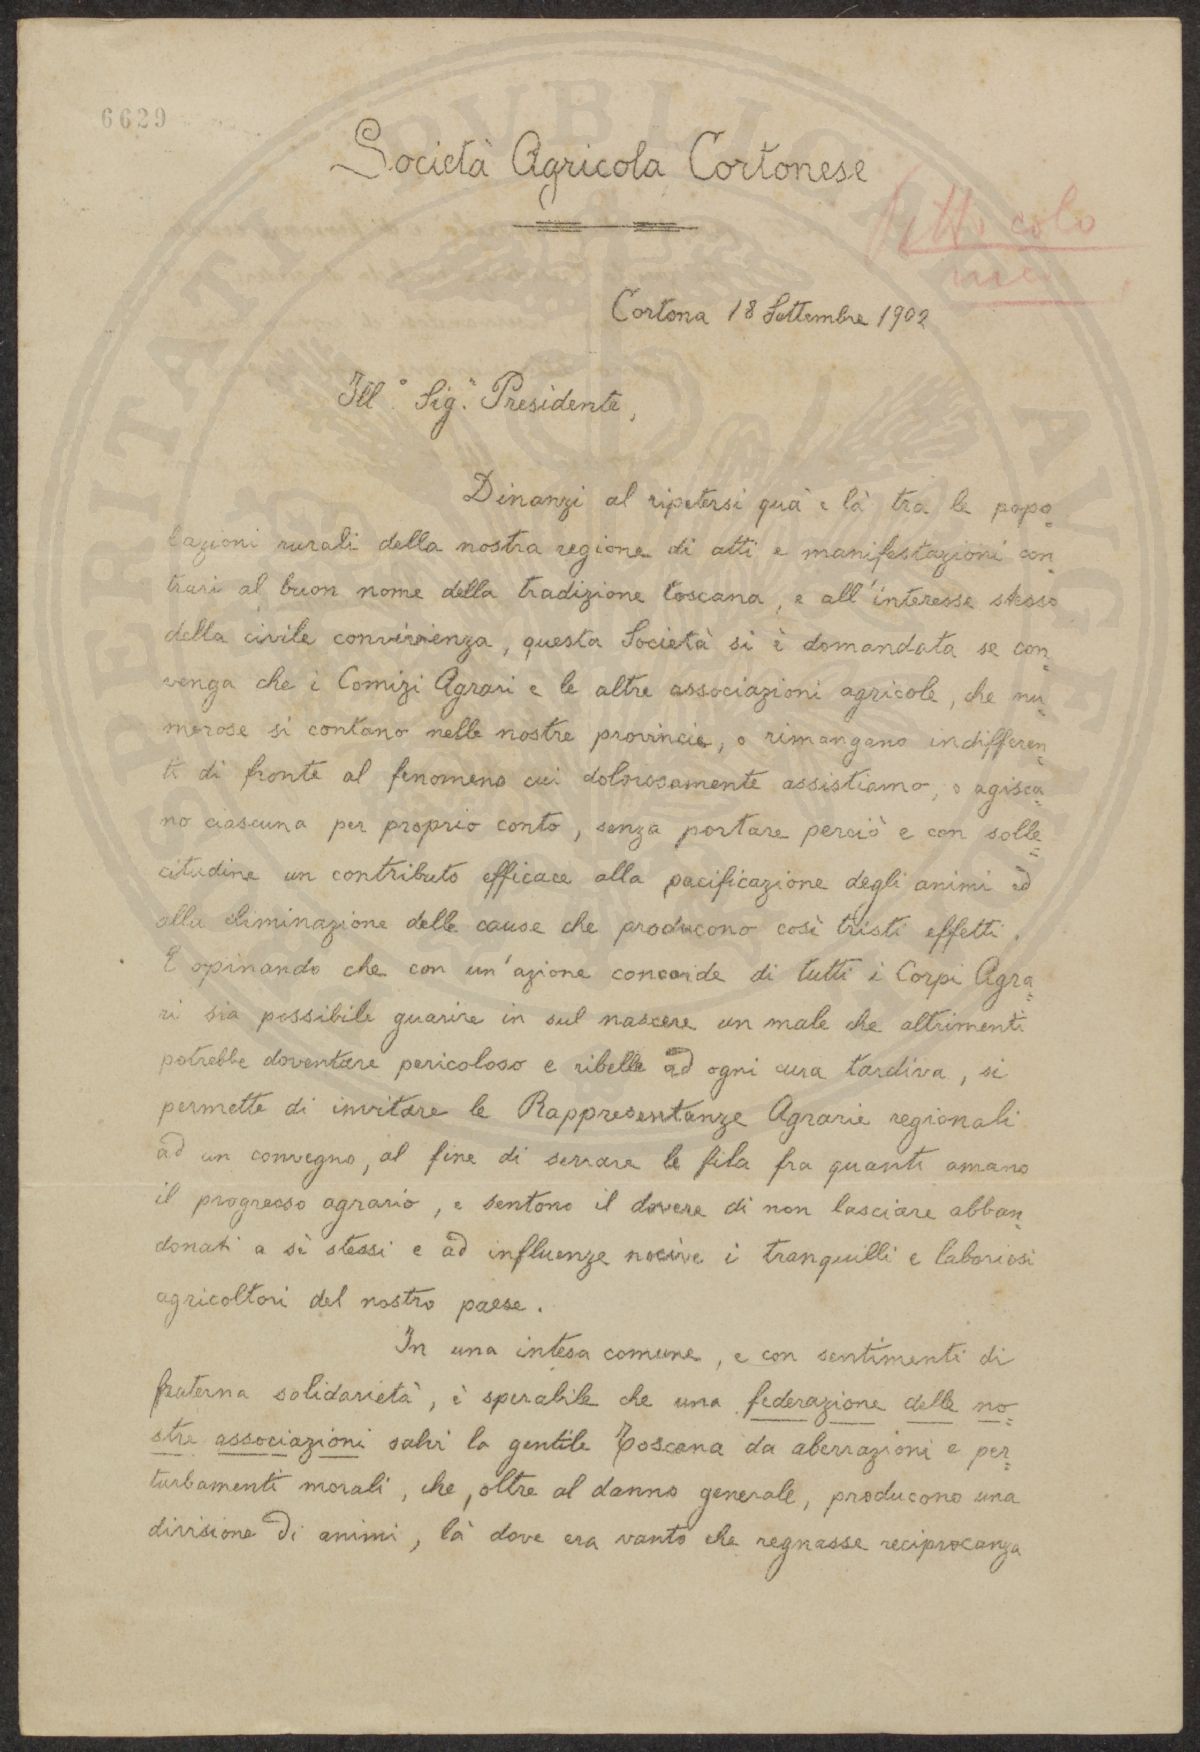 6629
Società Agricola Cortonese
Cortona 18 Settembre 1902
Ill.º Sig.r Presidente,
Dinanzi al ripetersi quà e là tra le popo=
lazioni rurali della nostra regione di atti e manifestazioni con=
trari al buon nome della tradizione toscana, e all'interesse stesso
della civile convivenza, questa Società si è domandata se con=
venga che i Comizi Agrari e le altre associazioni agricole, che nu=
merose si contano nelle nostre provincie, o rimangano indifferen=
ti di fronte al fenomeno cui dolorosamente assistiamo, o agisca=
no ciascuna per proprio conto, senza portare perciò e con solle=
citudine un contributo efficace alla pacificazione degli animi ed
alla eliminazione delle cause che producono così tristi effetti.
E opinando che con un'azione concorde di tutti i Corpi Agra=
ri sia possibile guarire in sul nascere un male che altrimenti
potrebbe doventare pericoloso e ribelle ad ogni cura tardiva, si
permette di invitare le Rappresentanze Agrarie regionali
ad un convegno, al fine di serrare le fila fra quanti amano
il progresso agrario, e sentono il dovere di non lasciare abban=
donati a sè stessi e ad influenze nocive i tranquilli e laboriosi
agricoltori del nostro paese.
In una intesa comune, e con sentimenti di
fraterna solidarietà, è sperabile che una federazione delle no=
stre associazioni salvi la gentile Toscana da aberrazioni e per=
turbamenti morali, che, oltre al danno generale, producono una
divisione di animi, là dove era vanto che regnasse reciprocanza